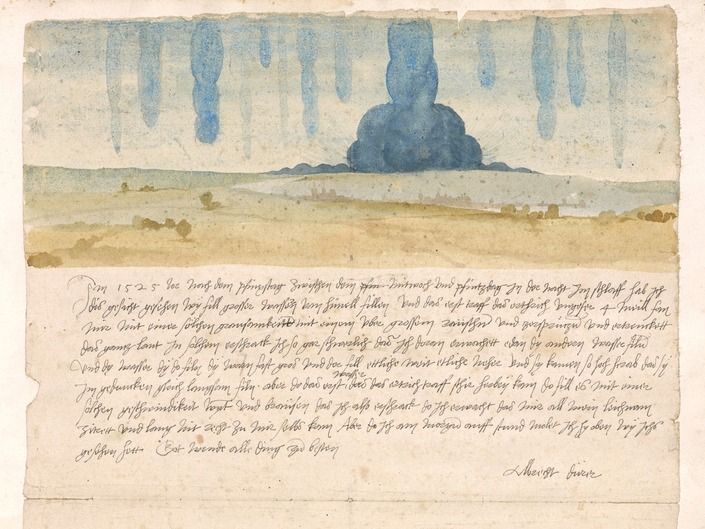 Im 1525 Jor noch dem pfinxstag zwischen dem pfin Mitwoch und pfintzdag in der nacht im schlaff hab ich
dis gesicht gesehen wy fill grosser wassern vom himell fillen Und das erst traff das erthrich ungefer 4 meill fan
mir mit einer solchen grausamkeitt mit einem uber grossem raüschn und zersprützn und ertrenckett
das gantz lant In solchem erschrack ich so gar schwerlich das ich doran erwachett edan dy andern wasser filn
Und dy wasser dy do filn dy warn fast gros und der fill ettliche weit etliche neher und sy kamen so hoch herab das sy
im gedancken gleich langsam filn. aber do das erst wasser das das ertrich traff schir herbey kam do fill es mit einer
solchen geschwindikeit wynt und braüsen das ich also erschrack do ich erwacht das mir all mein leichnam
zitrett und lang nit recht zu mir selbs kam Aber do ich am morgen auff stund molet ich hy oben wy ichs
gesehen hett. Got wende alle ding zu besten
Albrecht dürer